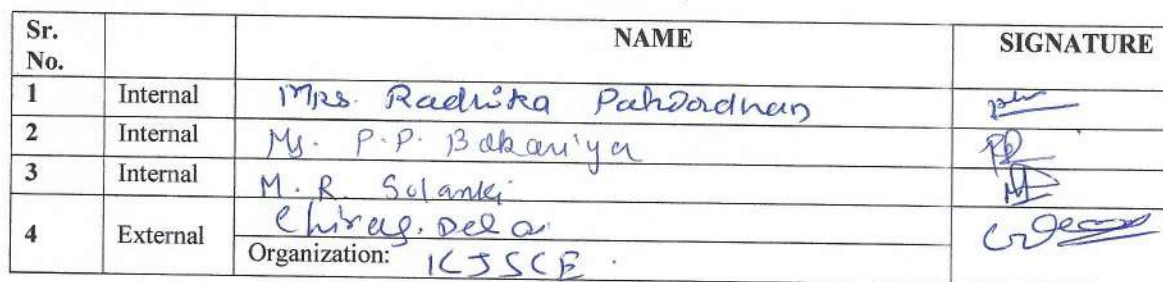 Sr. No. NAME SIGNATURE
1 Internal Mrs. Radhika Patwardhan
2 Internal Ms. P.P. Bakariya
3 Internal M.R. Solanki
4 External Chirag. Desai
Organization: KJSCE.